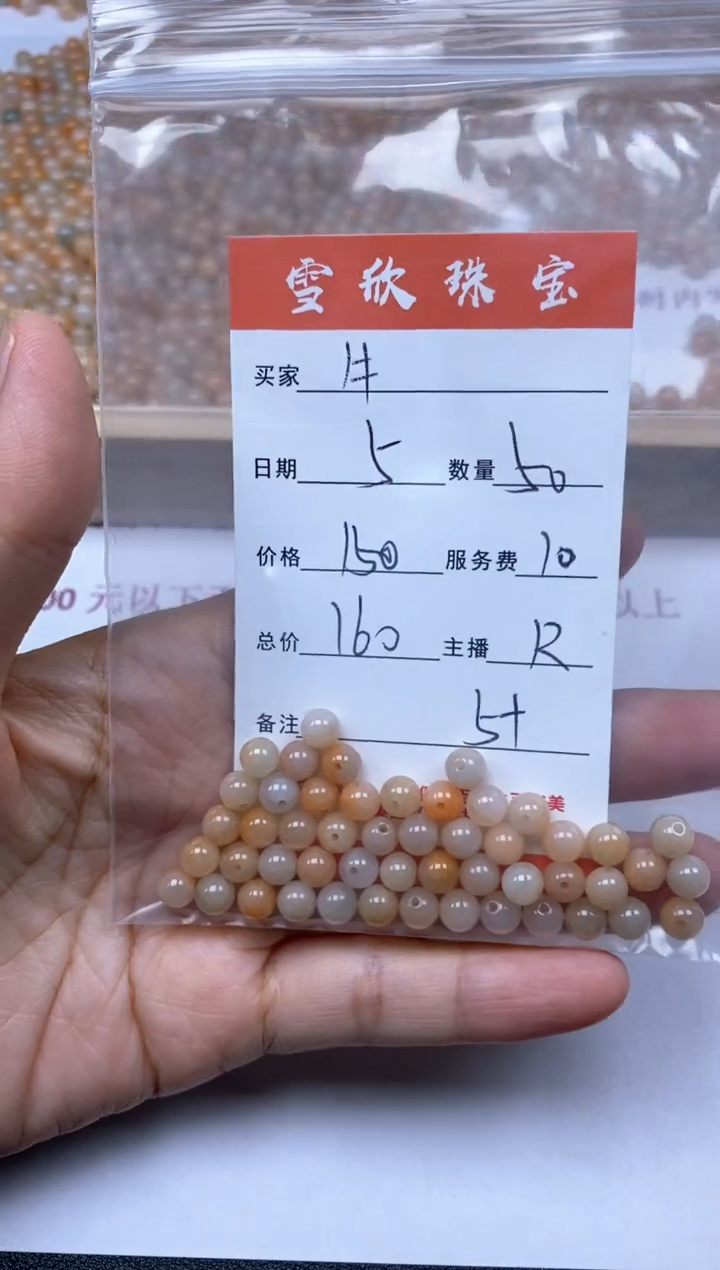 雪欣珠宝
买家 牛
日期 5 数量 50
价格 150 服务费 10
总价 160 主播 R
备注 5+
美
00元以下
以上
时内